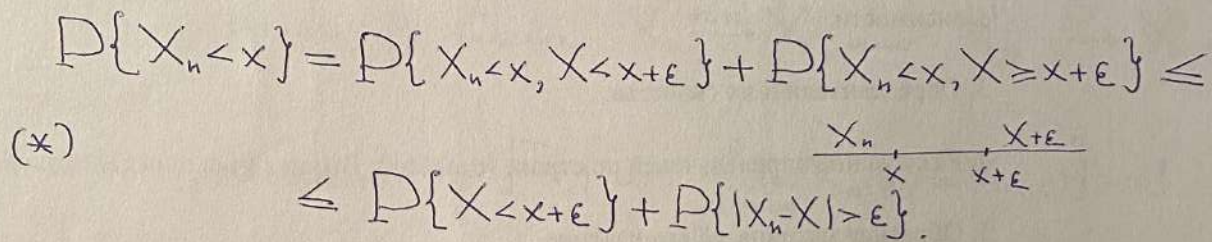 P{Xₙ<x} = P{Xₙ<x, X<x+ε} + P{Xₙ<x, X≥x+ε} ≤
(*)
Xₙ X+ε
x x+ε
≤ P{X<x+ε} + P{|Xₙ-X|>ε}.